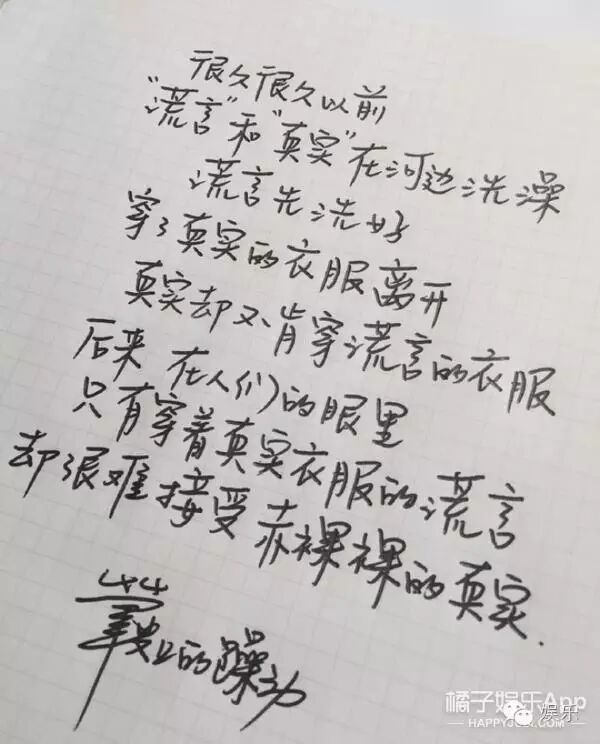 很久很久以前
“谎言”和“真实”在河边洗澡
谎言先洗好
穿了真实的衣服离开
真实却不肯穿谎言的衣服
后来 在人们的眼里
只有穿着真实衣服的谎言
却很难接受赤裸裸的真实.
的躁动
橘子娱乐App
HAPPYJUZI.COM
娱乐